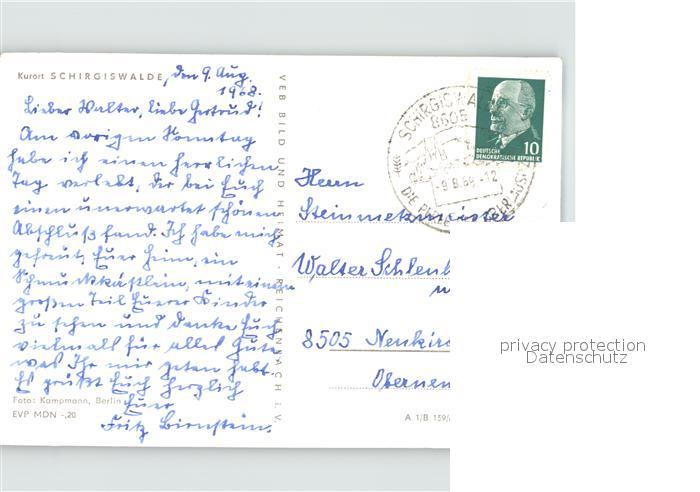 Kurort SCHIRGISWALDE, den 9. Aug.
1968.
Lieber Walter, liebe Gertrud!
Am vorigen Sonntag
habe ich einen herrlichen
Tag verlebt, der bei Euch
einen unerwartet schönen
Abschluß fand. Ich habe mich
gefreut, Euer Heim, ein
Schmuckkästlein, mit einem
großen Teil Euerer Kinder
zu sehen und danke Euch
vielmals für alles Gute
was Ihr mir getan habt.
Es grüßt Euch herzlich
Euer
Fritz Birnstein.
Foto: Kampmann, Berlin
EVP MDN -,20
VEB BILD UND HEIMAT REICHENBACH I. V.
SCHIRGISWA
8605
-9.8.68-12
DIE PERLE
10
DEUTSCHE
DEMOKRATISCHE REPUBLIK
Herrn
Steinmetzmeister
Walter Schlenk
8505 Neukirc
A 1/B 159/
privacy protection
Datenschutz